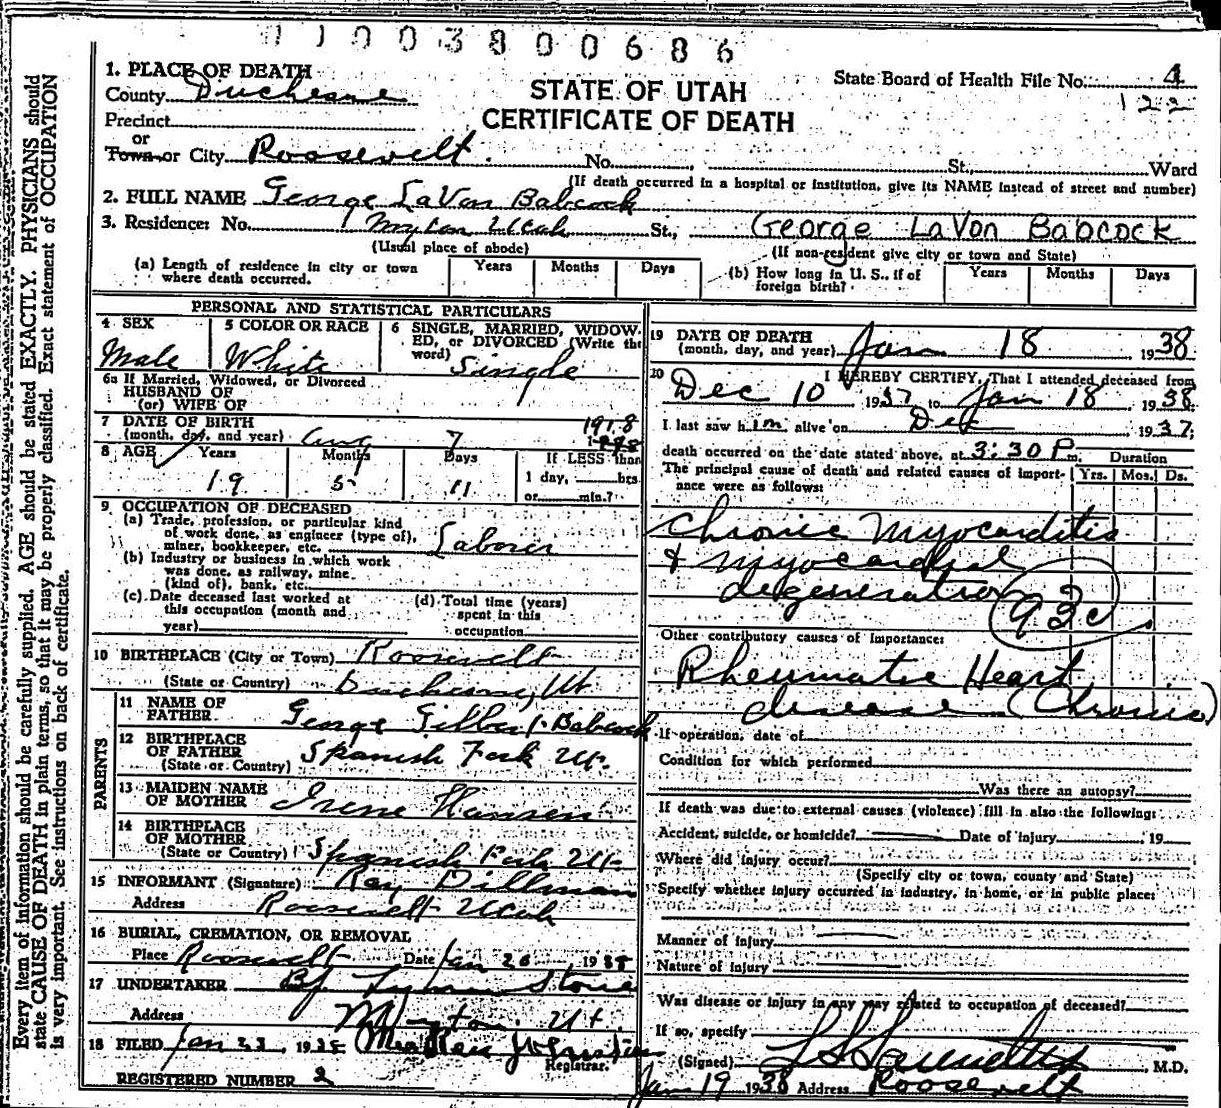 11003800686
1. PLACE OF DEATH
STATE OF UTAH
CERTIFICATE OF DEATH
State Board of Health File No. 4
122
County Duchesne
Precinct
or
Town or City Roosevelt. No. St., Ward
(If death occurred in a hospital or institution, give its NAME instead of street and number)
2. FULL NAME George LaVon Babcock
3. Residence: No. Myton Utah St., George LaVon Babcock
(Usual place of abode) (If non-resident give city or town and State)
(a) Length of residence in city or town where death occurred. Years Months Days
(b) How long in U. S., if of foreign birth? Years Months Days
PERSONAL AND STATISTICAL PARTICULARS
4 SEX Male
5 COLOR OR RACE White
6 SINGLE, MARRIED, WIDOWED, or DIVORCED (Write the word) Single
6a If Married, Widowed, or Divorced
HUSBAND OF
(or) WIFE OF
7 DATE OF BIRTH
(month, day, and year) Aug 7 1918
8 AGE Years Months Days If LESS than
19 5 11 1 day, hrs
or min.?
9 OCCUPATION OF DECEASED
(a) Trade, profession, or particular kind
of work done, as engineer (type of),
miner, bookkeeper, etc. Laborer
(b) Industry or business in which work
was done, as railway, mine
(kind of), bank, etc.
(c) Date deceased last worked at
this occupation (month and
year)
(d) Total time (years)
spent in this
occupation
10 BIRTHPLACE (City or Town) Roosevelt
(State or Country) Duchesne, Ut
PARENTS
11 NAME OF
FATHER George Gilbert Babcock
12 BIRTHPLACE
OF FATHER Spanish Fork Ut.
(State or Country)
13 MAIDEN NAME
OF MOTHER Irene Hansen
14 BIRTHPLACE
OF MOTHER
(State or Country) Spanish Fork Ut.
15 INFORMANT (Signature) Ray Dillman
Address Roosevelt Utah
16 BURIAL, CREMATION, OR REMOVAL
Place Roosevelt Date Jan 20 1938
17 UNDERTAKER Stone
Address Myton, Ut.
18 FILED Jan 23, 1938
Registrar.
REGISTERED NUMBER 2
19 DATE OF DEATH
(month, day, and year) Jan 18 1938
20 I HEREBY CERTIFY, That I attended deceased from
Dec 10 1937 to Jan 18 1938
I last saw him alive on Dec 1937;
death occurred on the date stated above, at 3:30 P m. Duration
The principal cause of death and related causes of importance were as follows: Yrs. Mos. Ds.
Chronic Myocarditis
& myocardial
degeneration
92c
Other contributory causes of importance:
Rheumatic Heart
disease (Chronic)
If operation, date of
Condition for which performed
Was there an autopsy?
If death was due to external causes (violence) fill in also the following:
Accident, suicide, or homicide? Date of injury 19
Where did injury occur?
(Specify city or town, county and State)
Specify whether injury occurred in industry, in home, or in public place:
Manner of injury
Nature of injury
Was disease or injury in any way related to occupation of deceased?
If so, specify
(Signed) M.D.
Jan 19 1938 Address Roosevelt
Every item of information should be carefully supplied. AGE should be stated EXACTLY. PHYSICIANS should
state CAUSE OF DEATH in plain terms, so that it may be properly classified. Exact statement of OCCUPATION
is very important. See instructions on back of certificate.